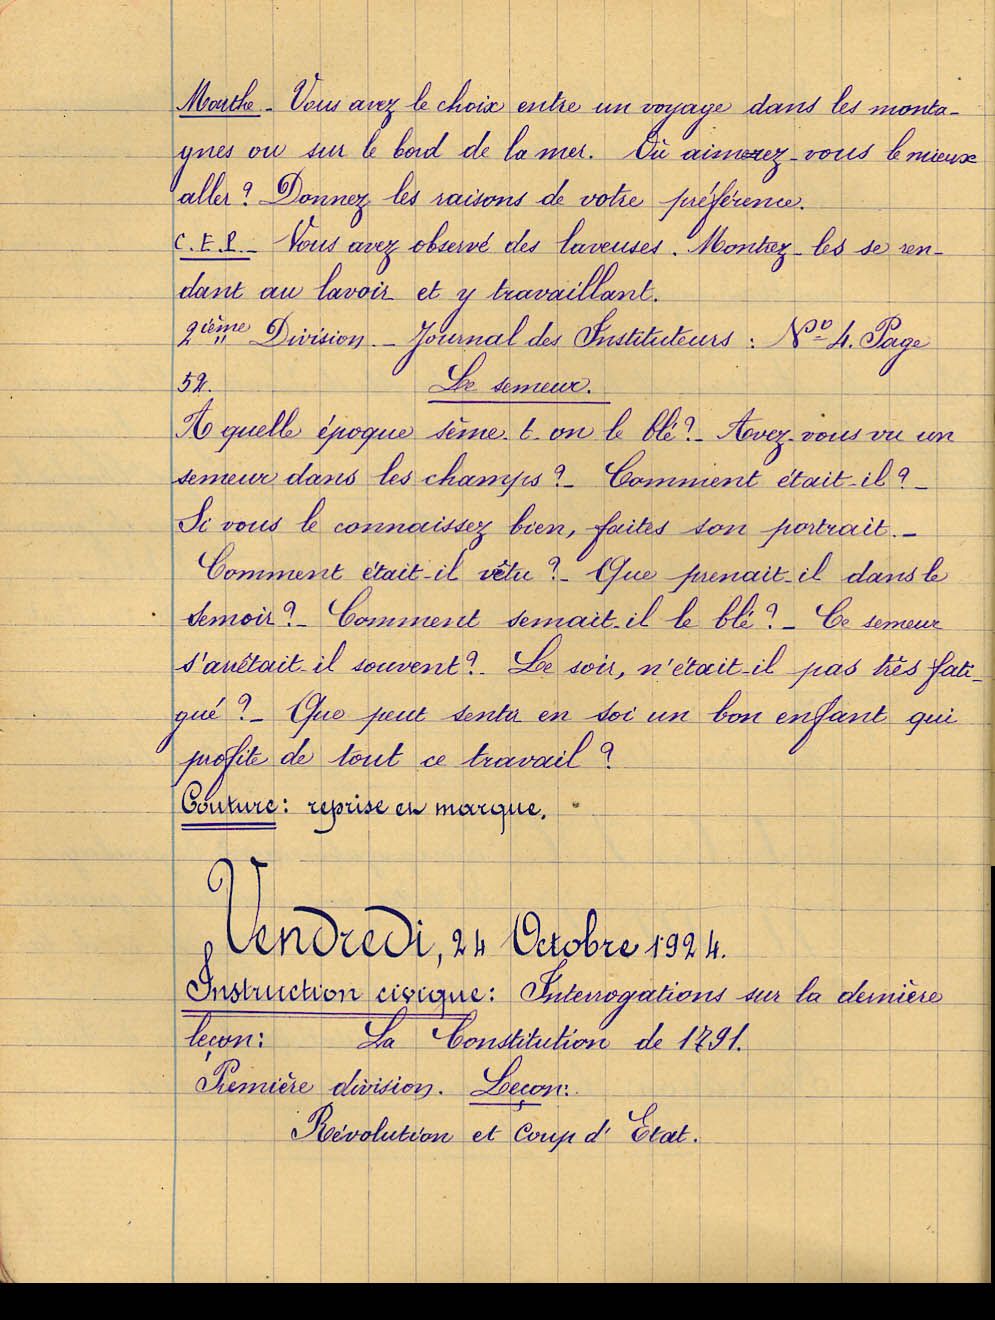 Marthe - Vous avez le choix entre un voyage dans les monta-
gnes ou sur le bord de la mer. Où aimerez-vous le mieux
aller ? Donnez les raisons de votre préférence.
C.E.P. - Vous avez observé des laveuses. Montrez-les se ren-
dant au lavoir et y travaillant.
2ième Division - Journal des Instituteurs : No 4. Page
52. Le semeur.
A quelle époque sème-t-on le blé ? - Avez-vous vu un
semeur dans les champs ? - Comment était-il ? -
Si vous le connaissez bien, faites son portrait. -
Comment était-il vêtu ? - Que prenait-il dans le
semoir ? - Comment semait-il le blé ? - Ce semeur
s'arrêtait-il souvent ? - Le soir, n'était-il pas très fati-
gué ? - Que peut sentir en soi un bon enfant qui
profite de tout ce travail ?
Couture : reprise en marque.
Vendredi, 24 Octobre 1924.
Instruction civique : Interrogations sur la dernière
leçon : La Constitution de 1791.
Première division. Leçon :
Révolution et Coup d'Etat.